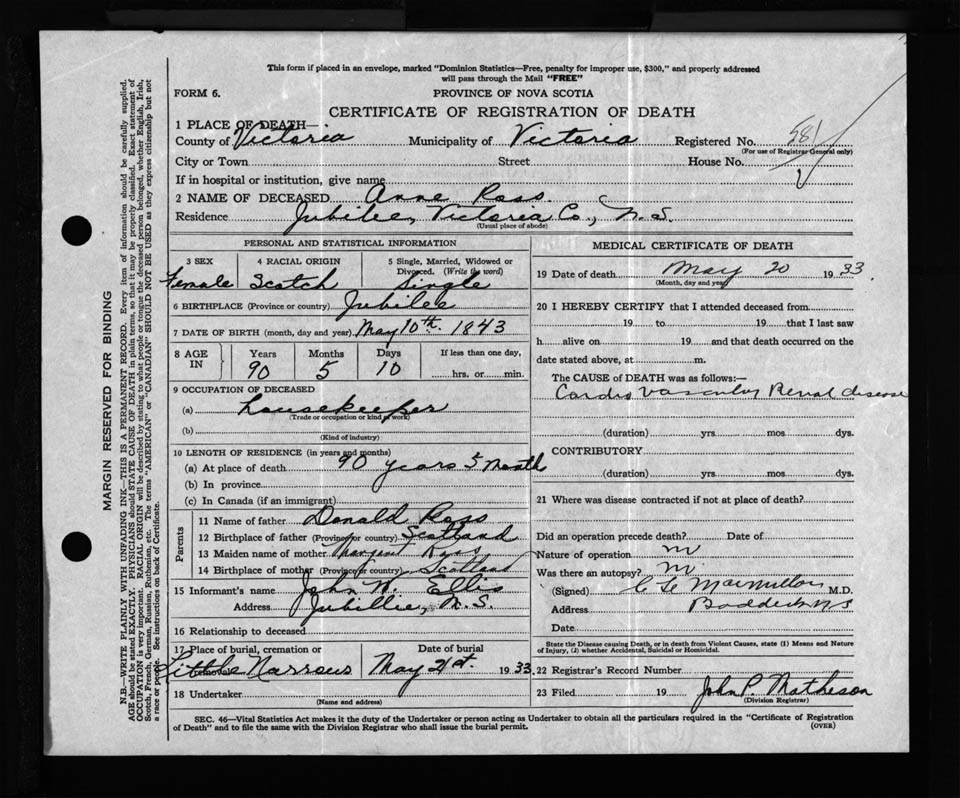 This form if placed in an envelope, marked "Dominion Statistics—Free, penalty for improper use, $300," and properly addressed
will pass through the Mail "FREE"
FORM 6.
PROVINCE OF NOVA SCOTIA
CERTIFICATE OF REGISTRATION OF DEATH
1 PLACE OF DEATH—
County of Victoria Municipality of Victoria Registered No. 581
(For use of Registrar General only)
City or Town Street House No.
If in hospital or institution, give name
2 NAME OF DECEASED Anne Ross
Residence Jubilee, Victoria Co., N.S.
(Usual place of abode)
PERSONAL AND STATISTICAL INFORMATION
3 SEX 4 RACIAL ORIGIN 5 Single, Married, Widowed or Divorced. (Write the word)
Female Scotch Single
6 BIRTHPLACE (Province or country) Jubilee
7 DATE OF BIRTH (month, day and year) May 10th. 1843
8 AGE IN Years Months Days If less than one day,
90 5 10 hrs. or min.
9 OCCUPATION OF DECEASED
(a) housekeeper
(Trade or occupation or kind of work)
(b)
(Kind of industry)
10 LENGTH OF RESIDENCE (in years and months)
(a) At place of death 90 years 5 Month
(b) In province
(c) In Canada (if an immigrant)
Parents
11 Name of father Donald Ross
12 Birthplace of father (Province or country) Scotland
13 Maiden name of mother Margaret Ross
14 Birthplace of mother (Province or country) Scotland
15 Informant's name John W. Ellis
Address Jubillie, N.S.
16 Relationship to deceased
17 Place of burial, cremation or removal Date of burial
Little Narrows May 21st. 1933
18 Undertaker
(Name and address)
MEDICAL CERTIFICATE OF DEATH
19 Date of death May 20 1933
(Month, day and year)
20 I HEREBY CERTIFY that I attended deceased from
19 to 19 that I last saw
h alive on 19 and that death occurred on the
date stated above, at m.
The CAUSE of DEATH was as follows:—
Cardio Vascular Renal disease
(duration) yrs. mos. dys.
CONTRIBUTORY
(duration) yrs. mos. dys.
21 Where was disease contracted if not at place of death?
Did an operation precede death? Date of
Nature of operation
Was there an autopsy?
(Signed) MacMillan M.D.
Address Baddeck NS
Date
State the Disease causing Death, or in death from Violent Causes, state (1) Means and Nature
of Injury, (2) whether Accidental, Suicidal or Homicidal.
22 Registrar's Record Number
23 Filed 19 John P. Matheson
(Division Registrar)
SEC. 46—Vital Statistics Act makes it the duty of the Undertaker or person acting as Undertaker to obtain all the particulars required in the "Certificate of Registration
of Death" and to file the same with the Division Registrar who shall issue the burial permit.
(OVER)
MARGIN RESERVED FOR BINDING
N.B.—WRITE PLAINLY WITH UNFADING INK—THIS IS A PERMANENT RECORD. Every item of information should be carefully supplied.
AGE should be stated EXACTLY. PHYSICIANS should STATE CAUSE OF DEATH in plain terms, so that it may be properly classified. Exact statement of
OCCUPATION is very important. RACIAL ORIGIN will be described by stating to what people or tongue the deceased person belonged, whether English, Irish,
Scotch, French, German, Russian, Ruthenian, etc. The terms "AMERICAN" or "CANADIAN" SHOULD NOT BE USED as they express citizenship but not
a race or people. See instructions on back of Certificate.